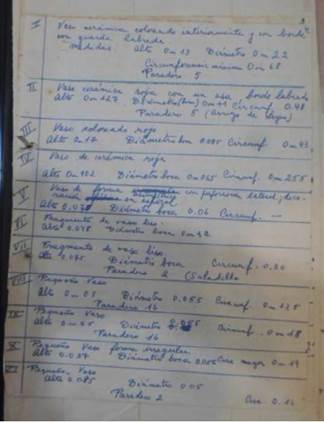 I Vaso cerámica coloreado interiormente y con borde
con guarda labrada
medidas Alto 0m 13 Diámetro 0m 22
Circunferencia máxima 0m 68
Paradero 5
II Vaso cerámica roja con un asa borde labrado
Alto 0m Diámetro Circunf. 0.48
Paradero 5
III Vaso coloreado rojo
Alto 0m17 Diámetro boca 0.085 Circunf. 0m 43
IV Vaso de cerámica roja
Alto 0m 102 Diámetro boca 0m 065 Circunf. 0m 255
V Vaso de forma con lateral; deco-
ración en espiral
Alto 0.078 Diámetro boca 0.06 Circunf. —
VI Fragmento de vaso liso
Alto 0.078 Diámetro boca 0m 12
VII Fragmento de vaso liso
Alto 0.075 Diámetro boca Circunf. 0.30
Paradero 2 (Saladillo
VIII Pequeño Vaso
Alto 0m 05 Diámetro 0.055 Circunf. 0m 175
Paradero 16
IX Pequeño Vaso
Alto 0m 05 Diámetro 0.055 Circunf. 0m 18
Paradero 16
X Pequeño Vaso forma irregular
Alto 0.037 Diámetro boca Circ. mayor 0m 19
XI Pequeño Vaso
Alto 0.085 Diámetro 0.05
Paradero 2 Circ.